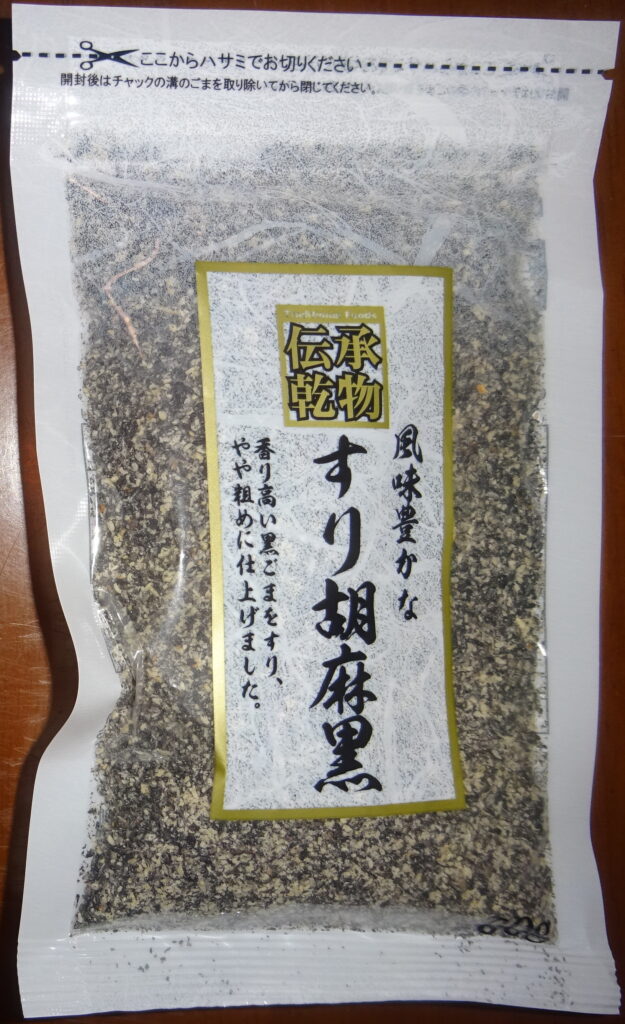 ここからハサミでお切りください
開封後はチャックの溝のごまを取り除いてから閉じてください。
伝承
乾物
風味豊かな
すり胡麻黒
香り高い黒ごまをすり、
やや粗めに仕上げました。